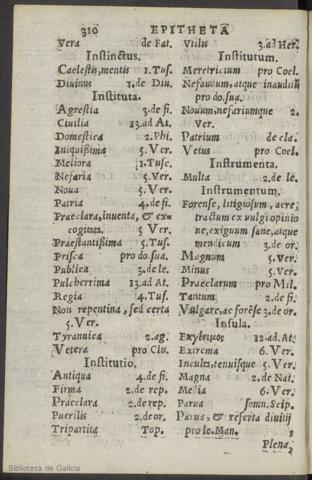 310 EPITHETA
Vera de Fat.
Instinctus.
Caelestis, mentis 1. Tus.
Diuinus 1. de Diu.
Instituta.
Agrestia 3. de fi.
Ciuilia 13. ad At.
Domestica 2. Phi.
Iniquißima 5. Ver.
Meliora 1. Tusc.
Nefaria 5. Ver.
Noua 5. Ver.
Patria 4. de fi.
Praeclara, inuenta, & ex-
cogitata 5. Ver.
Praestantißima 5. Tus.
Prisca pro do. sua.
Publica 3. de le.
Pulcherrima 13. ad At.
Regia 4. Tus.
Non repentina, sed certa
5. Ver.
Tyrannica 2. ag.
Vetera pro Clu.
Institutio.
Antiqua 4. de fi.
Firma 2. de rep.
Praeclara 2. de rep.
Puerilis 2. de or.
Tripartita Top.
Vtilis 3. ad Her.
Institutum.
Meretricium pro Coel.
Nefandum, atque inauditũ
pro do. sua.
Nouum, nefariumque 2.
Ver.
Patrium de cla.
Vetus pro Coel.
Instrumenta.
Multa 2. de le.
Instrumentum.
Forense, litigiosum, acre,
tractum ex vulgi opinio
ne, exiguum sane, atque
mendicum 3. de or.
Magnum 5. Ver.
Minus 5. Ver.
Praeclarum pro Mil.
Tantum 2. de fi.
Vulgare, ac forẽse 3. de or.
Insula.
12. ad At.
Extrema 6. Ver.
Inculta, tenuisque 5. Ver.
Magna 2. de Nat.
Media 6. Ver.
Parua somn. Scip.
Parua, & referta diuitijs
pro le. Man.
Plena
Biblioteca de Galicia